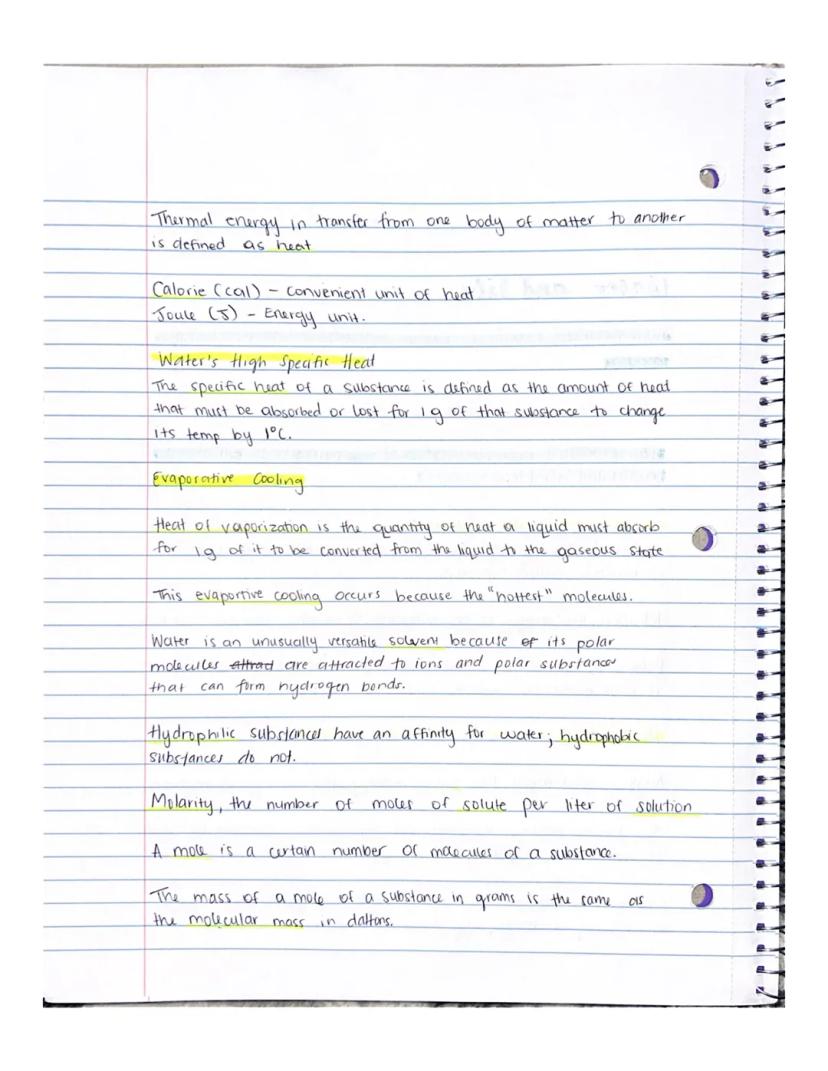 Thermal energy in transfer from one body of matter to another
is defined as heat
Calorie (cal) - convenient unit of heat
Joule (J) - Energy unit.
Water's High Specific Heat
The specific heat of a substance is defined as the amount of heat
that must be absorbed or lost for 1g of that substance to change
its temp by 1°C.
Evaporative Cooling
Heat of vaporization is the quantity of heat a liquid must absorb
for 1g of it to be converted from the liquid to the gaseous state
This evaportive cooling occurs because the "hottest" molecules.
Water is an unusually versatile solvent because of its polar
molecules attrad are attracted to ions and polar substances
that can form hydrogen bonds.
Hydrophilic substances have an affinity for water; hydrophobic
substances do not.
Molarity, the number of moles of solute per liter of solution
A mole is a certain number of molecules of a substance.
The mass of a mole of a substance in grams is the same as
the molecular mass in daltons.